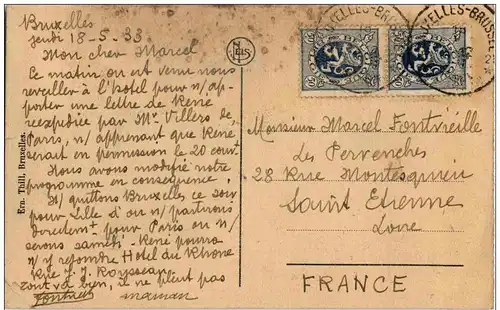 Bruxelles
jeudi 18-5-33
Mon cher Marcel
Ce matin on est venu nous
reveiller à l'hotel pour n/ ap-
porter une lettre de René
reexpediée par Mr Villers de
Paris, n/ apprenant que René
serait en permission le 20 court
Nous avons modifié notre
programme en consequence
N/ quittons Bruxelles ce soir
pour Lille d'ou n/ partirons
directemt pour Paris ou n/
serons samedi - René pourra
n/ y rejoindre Hotel du Rhone
Rue J. J. Rousseau
tout va bien, il ne pleut pas
maman
Ern. Thill, Bruxelles.
NELS
BRUXELLES-BRUSSEL
Monsieur Marcel Fontvieille
Les Pervenches
28 Rue Montesquieu
Saint Etienne
Loire
FRANCE